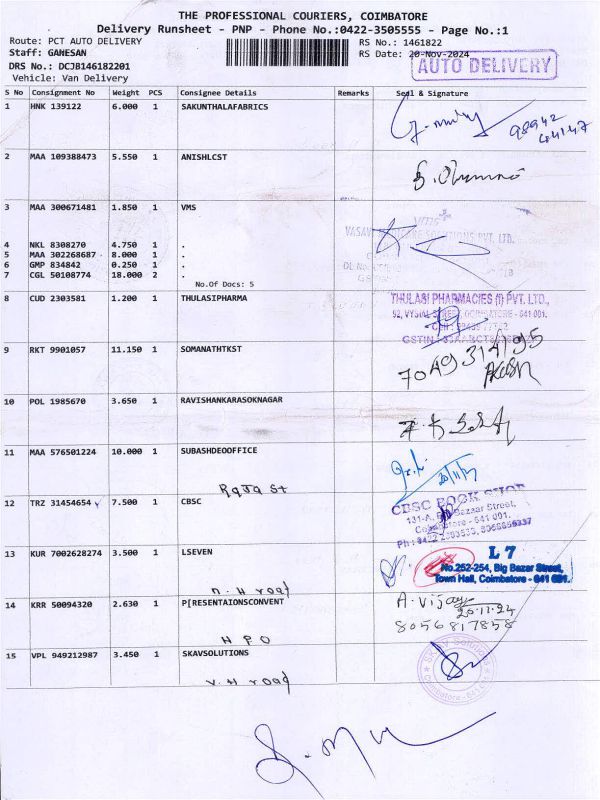 THE PROFESSIONAL COURIERS, COIMBATORE
Delivery Runsheet - PNP - Phone No.:0422-3505555 - Page No.:1
Route: PCT AUTO DELIVERY
RS No.: 1461822
Staff: GANESAN
RS Date: 20-Nov-2024
DRS No.: DCJB146182201
AUTO DELIVERY
Vehicle: Van Delivery
S No Consignment No Weight PCS Consignee Details Remarks Seal & Signature
1 HNK 139122 6.000 1 SAKUNTHALAFABRICS
98942
44147
2 MAA 109388473 5.550 1 ANISHLCST
3 MAA 300671481 1.850 1 VMS
4 NKL 8308270 4.750 1 .
5 MAA 302268687 8.000 1 .
6 GMP 834842 0.250 1 .
7 CGL 50108774 18.000 2 .
No.Of Docs: 5
8 CUD 2303581 1.200 1 THULASIPHARMA
THULASI PHARMACIES (I) PVT. LTD.,
9 RKT 9901057 11.150 1 SOMANATHTKST
7049314195
10 POL 1985670 3.650 1 RAVISHANKARASOKNAGAR
11 MAA 576501224 10.000 1 SUBASHDEOOFFICE
Raja St
12 TRZ 31454654 7.500 1 CBSC
CBSC BOOK SHOP
131-A, Big Bazaar Street,
Coimbatore - 641 001.
13 KUR 7002628274 3.500 1 LSEVEN
L 7
No.252-254, Big Bazar Street,
Town Hall, Coimbatore - 641 001.
N. H road
14 KRR 50094320 2.630 1 P[RESENTAIONSCONVENT
A. Vijay
20.11.24
8056817858
H P O
15 VPL 949212987 3.450 1 SKAVSOLUTIONS
V. H road